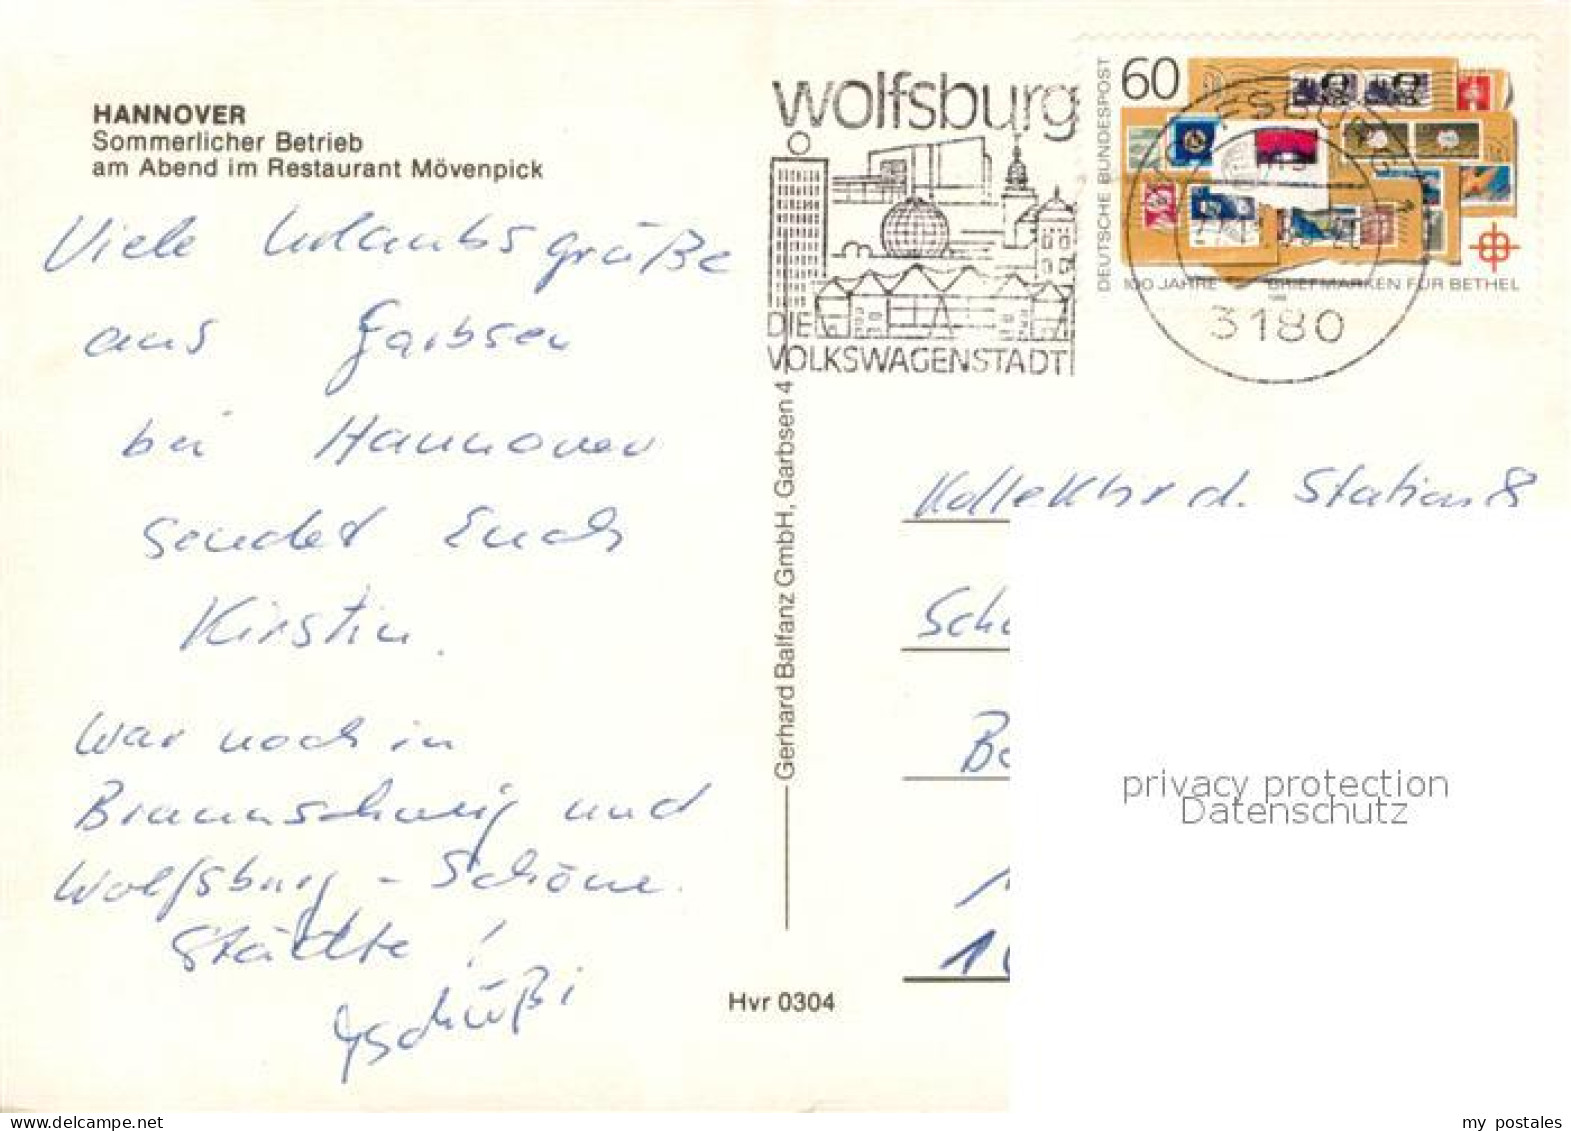 HANNOVER
Sommerlicher Betrieb
am Abend im Restaurant Mövenpick
Viele Urlaubsgrüße
aus Garbsen
bei Hannover
sendet Euch
Kirstin.
War noch in
Braunschweig und
Wolfsburg - Schöne
Städte!
Tschüßi
Gerhard Balfanz GmbH, Garbsen 4
Hvr 0304
wolfsburg
DIE
VOLKSWAGENSTADT
DEUTSCHE BUNDESPOST
60
100 JAHRE BRIEFMARKEN FÜR BETHEL
1988
3180
Kollektiv d. Station 8
privacy protection
Datenschutz
my postales